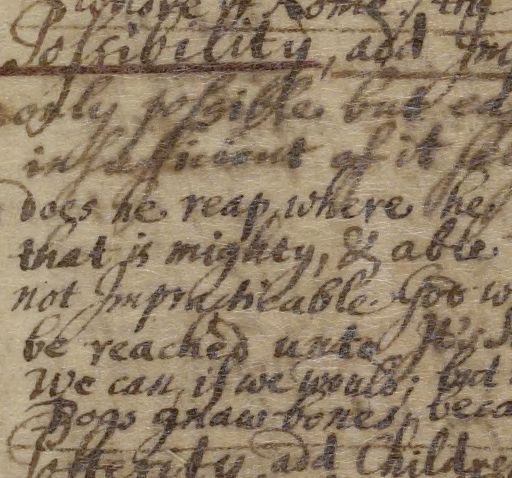 Possibility, add
only possible but
insufficient of it
does he reap, where he
that is mighty, & able
not Impracticable. God
be reached unto
We can, if we would; but
Dogs gnaw bones, beca
Posterity, add Childre